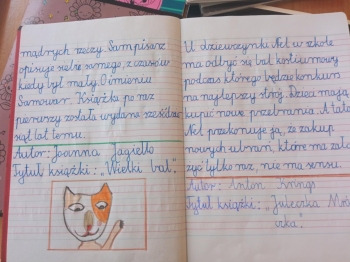 mądrych rzeczy. Sam pisarz
opisuje siebie samego, z czasów
kiedy był mały. O imieniu
Samowar. Książka po raz
pierwszy została wydana sześćdzie-
siąt lat temu.
Autor: Joanna Jagiełło
Tytuł książki: „Wielki bal".
U dziewczynki Nel w szkole
ma odbyć się bal kostiumowy
podczas którego będzie konkurs
na najlepszy strój. Dzieci mają
kupić nowe przebrania. A tata
Nel przekonuje ją, że zakup
nowych ubrań, które ma zało-
żyć tylko raz, nie ma sensu.
Autor: Anton Krings
Tytuł książki: „Juleczka Mró
wka".